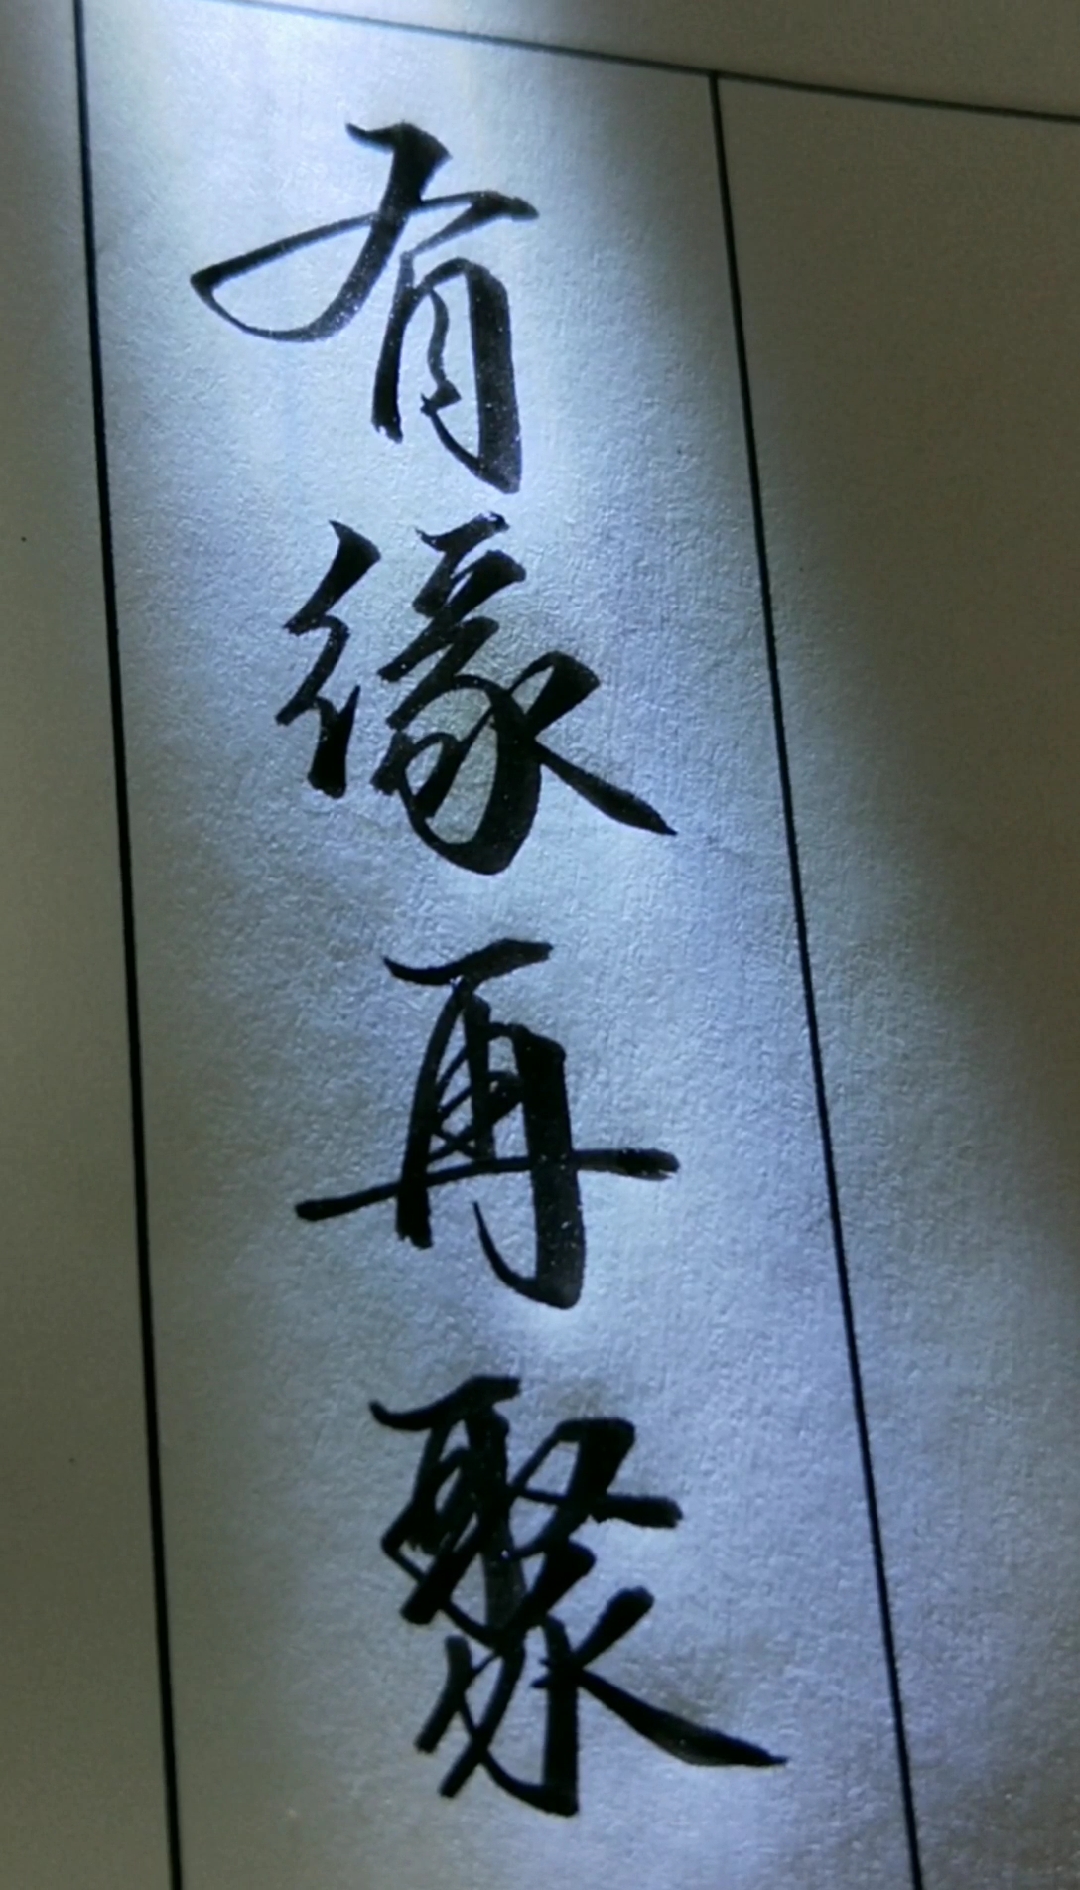 有缘再聚